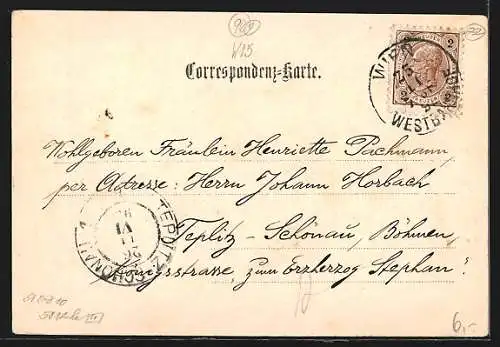 969
W15
22
Correspondenz-Karte.
2 2
WIEN
WESTBAHNHOF
Wohlgeboren Fräulein Henriette Pachmann
per Adresse: Herrn Johann Horbach
Teplitz-Schönau, Böhmen,
Königsstrasse, "zum Erzherzog Stephan".
TEPLITZ-SCHÖNAU
VI
6,-